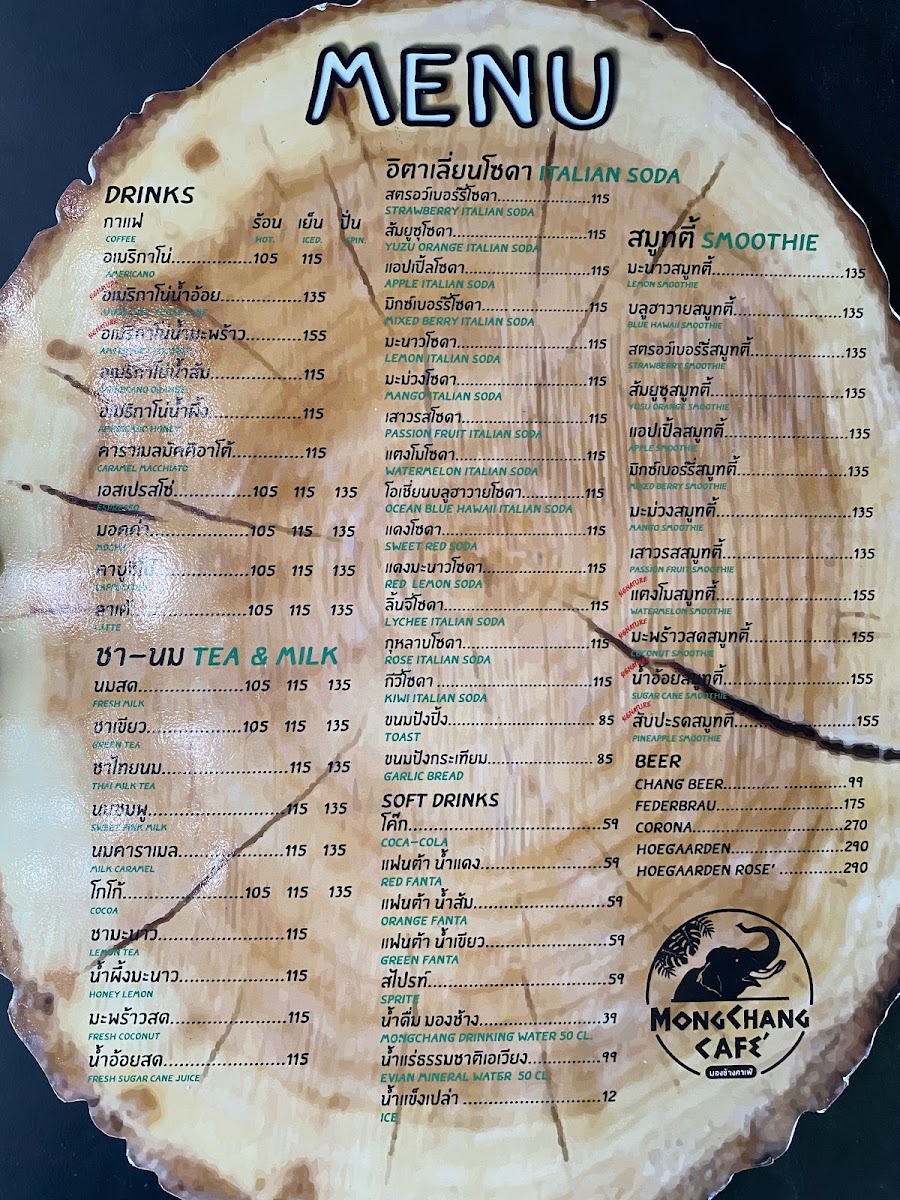 MENU
DRINKS
กาแฟ ร้อน เย็น ปั่น
COFFEE HOT. ICED. SPIN.
อเมริกาโน่ 105 115
AMERICANO
SIGNATURE
อเมริกาโน่น้ำอ้อย 135
SIGNATURE
อเมริกาโน่น้ำมะพร้าว 155
อเมริกาโน่น้ำส้ม 115
AMERICANO ORANGE
อเมริกาโน่น้ำผึ้ง 115
AMERICANO HONEY
คาราเมลมัคคิอาโต้ 115
CARAMEL MACCHIATO
เอสเปรสโซ่ 105 115 135
ESPRESSO
มอคค่า 105 115 135
MOCHA
คาปูชิโน่ 105 115 135
CAPPUCCINO
ลาเต้ 105 115 135
LATTE
ชา-นม TEA & MILK
นมสด 105 115 135
FRESH MILK
ชาเขียว 105 115 135
GREEN TEA
ชาไทยนม 115 135
THAI MILK TEA
นมชมพู 115 135
SWEET PINK MILK
นมคาราเมล 115 135
MILK CARAMEL
โกโก้ 105 115 135
COCOA
ชามะนาว 115
LEMON TEA
น้ำผึ้งมะนาว 115
HONEY LEMON
มะพร้าวสด 115
FRESH COCONUT
น้ำอ้อยสด 115
FRESH SUGAR CANE JUICE
อิตาเลี่ยนโซดา ITALIAN SODA
สตรอว์เบอร์รีโซดา 115
STRAWBERRY ITALIAN SODA
ส้มยูซุโซดา 115
YUZU ORANGE ITALIAN SODA
แอปเปิ้ลโซดา 115
APPLE ITALIAN SODA
มิกซ์เบอร์รี่โซดา 115
MIXED BERRY ITALIAN SODA
มะนาวโซดา 115
LEMON ITALIAN SODA
มะม่วงโซดา 115
MANGO ITALIAN SODA
เสาวรสโซดา 115
PASSION FRUIT ITALIAN SODA
แตงโมโซดา 115
WATERMELON ITALIAN SODA
โอเชี่ยนบลูฮาวายโซดา 115
OCEAN BLUE HAWAII ITALIAN SODA
แดงโซดา 115
SWEET RED SODA
แดงมะนาวโซดา 115
RED LEMON SODA
ลิ้นจี่โซดา 115
LYCHEE ITALIAN SODA
กุหลาบโซดา 115
ROSE ITALIAN SODA
กีวีโซดา 115
KIWI ITALIAN SODA
ขนมปังปิ้ง 85
TOAST
ขนมปังกระเทียม 85
GARLIC BREAD
SOFT DRINKS
โค๊ก 59
COCA-COLA
แฟนต้า น้ำแดง 59
RED FANTA
แฟนต้า น้ำส้ม 59
ORANGE FANTA
แฟนต้า น้ำเขียว 59
GREEN FANTA
สไปรท์ 59
SPRITE
น้ำดื่ม มองช้าง 39
MONGCHANG DRINKING WATER 50 CL.
น้ำแร่ธรรมชาติเอเวียง 99
EVIAN MINERAL WATER 50 CL.
น้ำแข็งเปล่า 12
ICE
สมูทตี้ SMOOTHIE
มะนาวสมูทตี้ 135
LEMON SMOOTHIE
บลูฮาวายสมูทตี้ 135
BLUE HAWAII SMOOTHIE
สตรอว์เบอร์รี่สมูทตี้ 135
STRAWBERRY SMOOTHIE
ส้มยูซุสมูทตี้ 135
YUSU ORANGE SMOOTHIE
แอปเปิ้ลสมูทตี้ 135
APPLE SMOOTHIE
มิกซ์เบอร์รี่สมูทตี้ 135
MIXED BERRY SMOOTHIE
มะม่วงสมูทตี้ 135
MANGO SMOOTHIE
เสาวรสสมูทตี้ 135
PASSION FRUIT SMOOTHIE
SIGNATURE
แตงโมสมูทตี้ 155
WATERMELON SMOOTHIE
SIGNATURE
มะพร้าวสดสมูทตี้ 155
COCONUT SMOOTHIE
SIGNATURE
น้ำอ้อยสมูทตี้ 155
SUGAR CANE SMOOTHIE
SIGNATURE
สับปะรดสมูทตี้ 155
PINEAPPLE SMOOTHIE
BEER
CHANG BEER 99
FEDERBRAU 175
CORONA 270
HOEGAARDEN 290
HOEGAARDEN ROSE' 290
MONGCHANG
CAFE'
มองช้างคาเฟ่